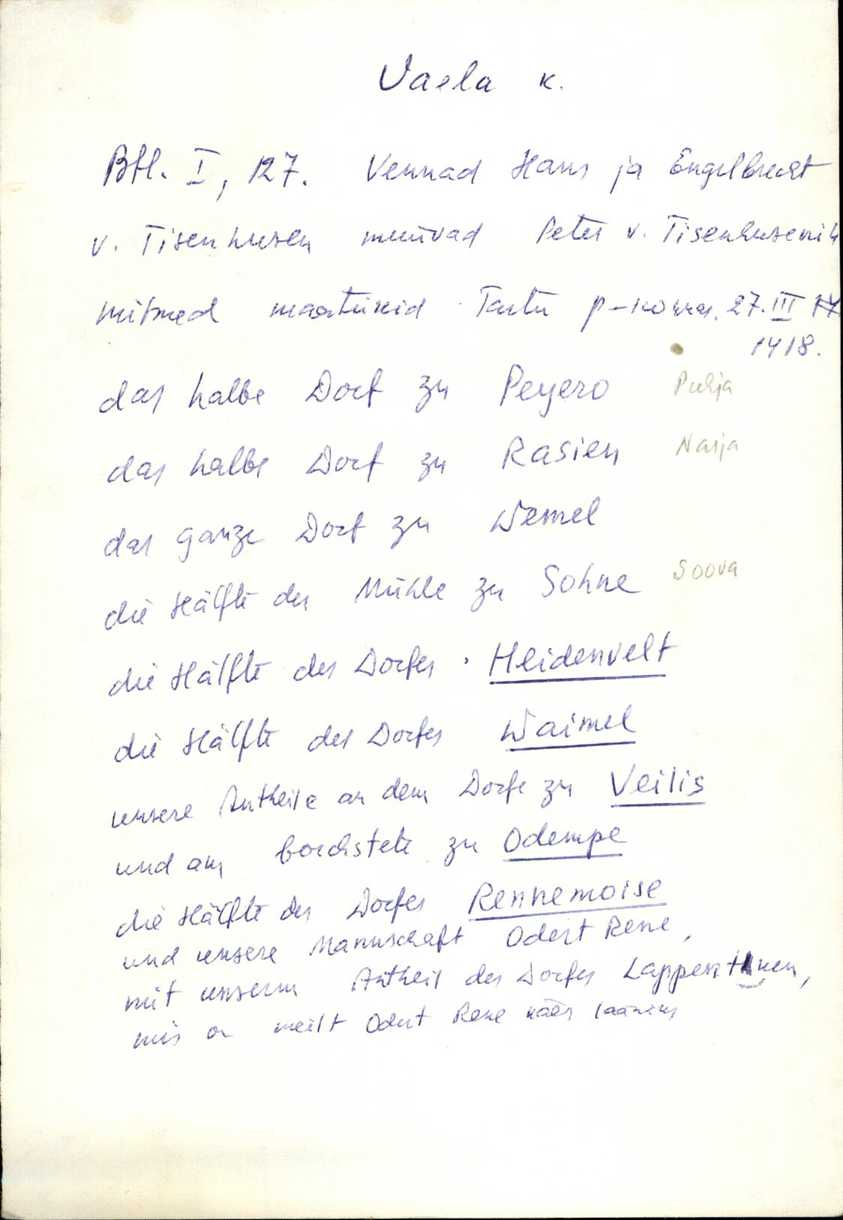 Vaela k.
Bfl. I, 127. Vennad Hans ja Engelbrecht
v. Tisenhusen müüvad Peter v. Tisenhusenile
mitmed maatükid Tartu p-konnas. 27. III
1418.
das halbe Dorf zu Peyero Puhja
das halbe Dorf zu Rasien Nasja
das ganze Dorf zu Wemel
die Hälfte der Mühle zu Sohne Soova
die Hälfte des Dorfes Heidenvelt
die Hälfte des Dorfes Waimel
unsere Antheile an dem Dorfe zu Veilis
und am borchstete zu Odempe
die Hälfte des Dorfes Rennemoise
und unsere Mannschaft Odert Rene,
mit unserm Antheil des Dorfes
mis on meilt Odert Rene